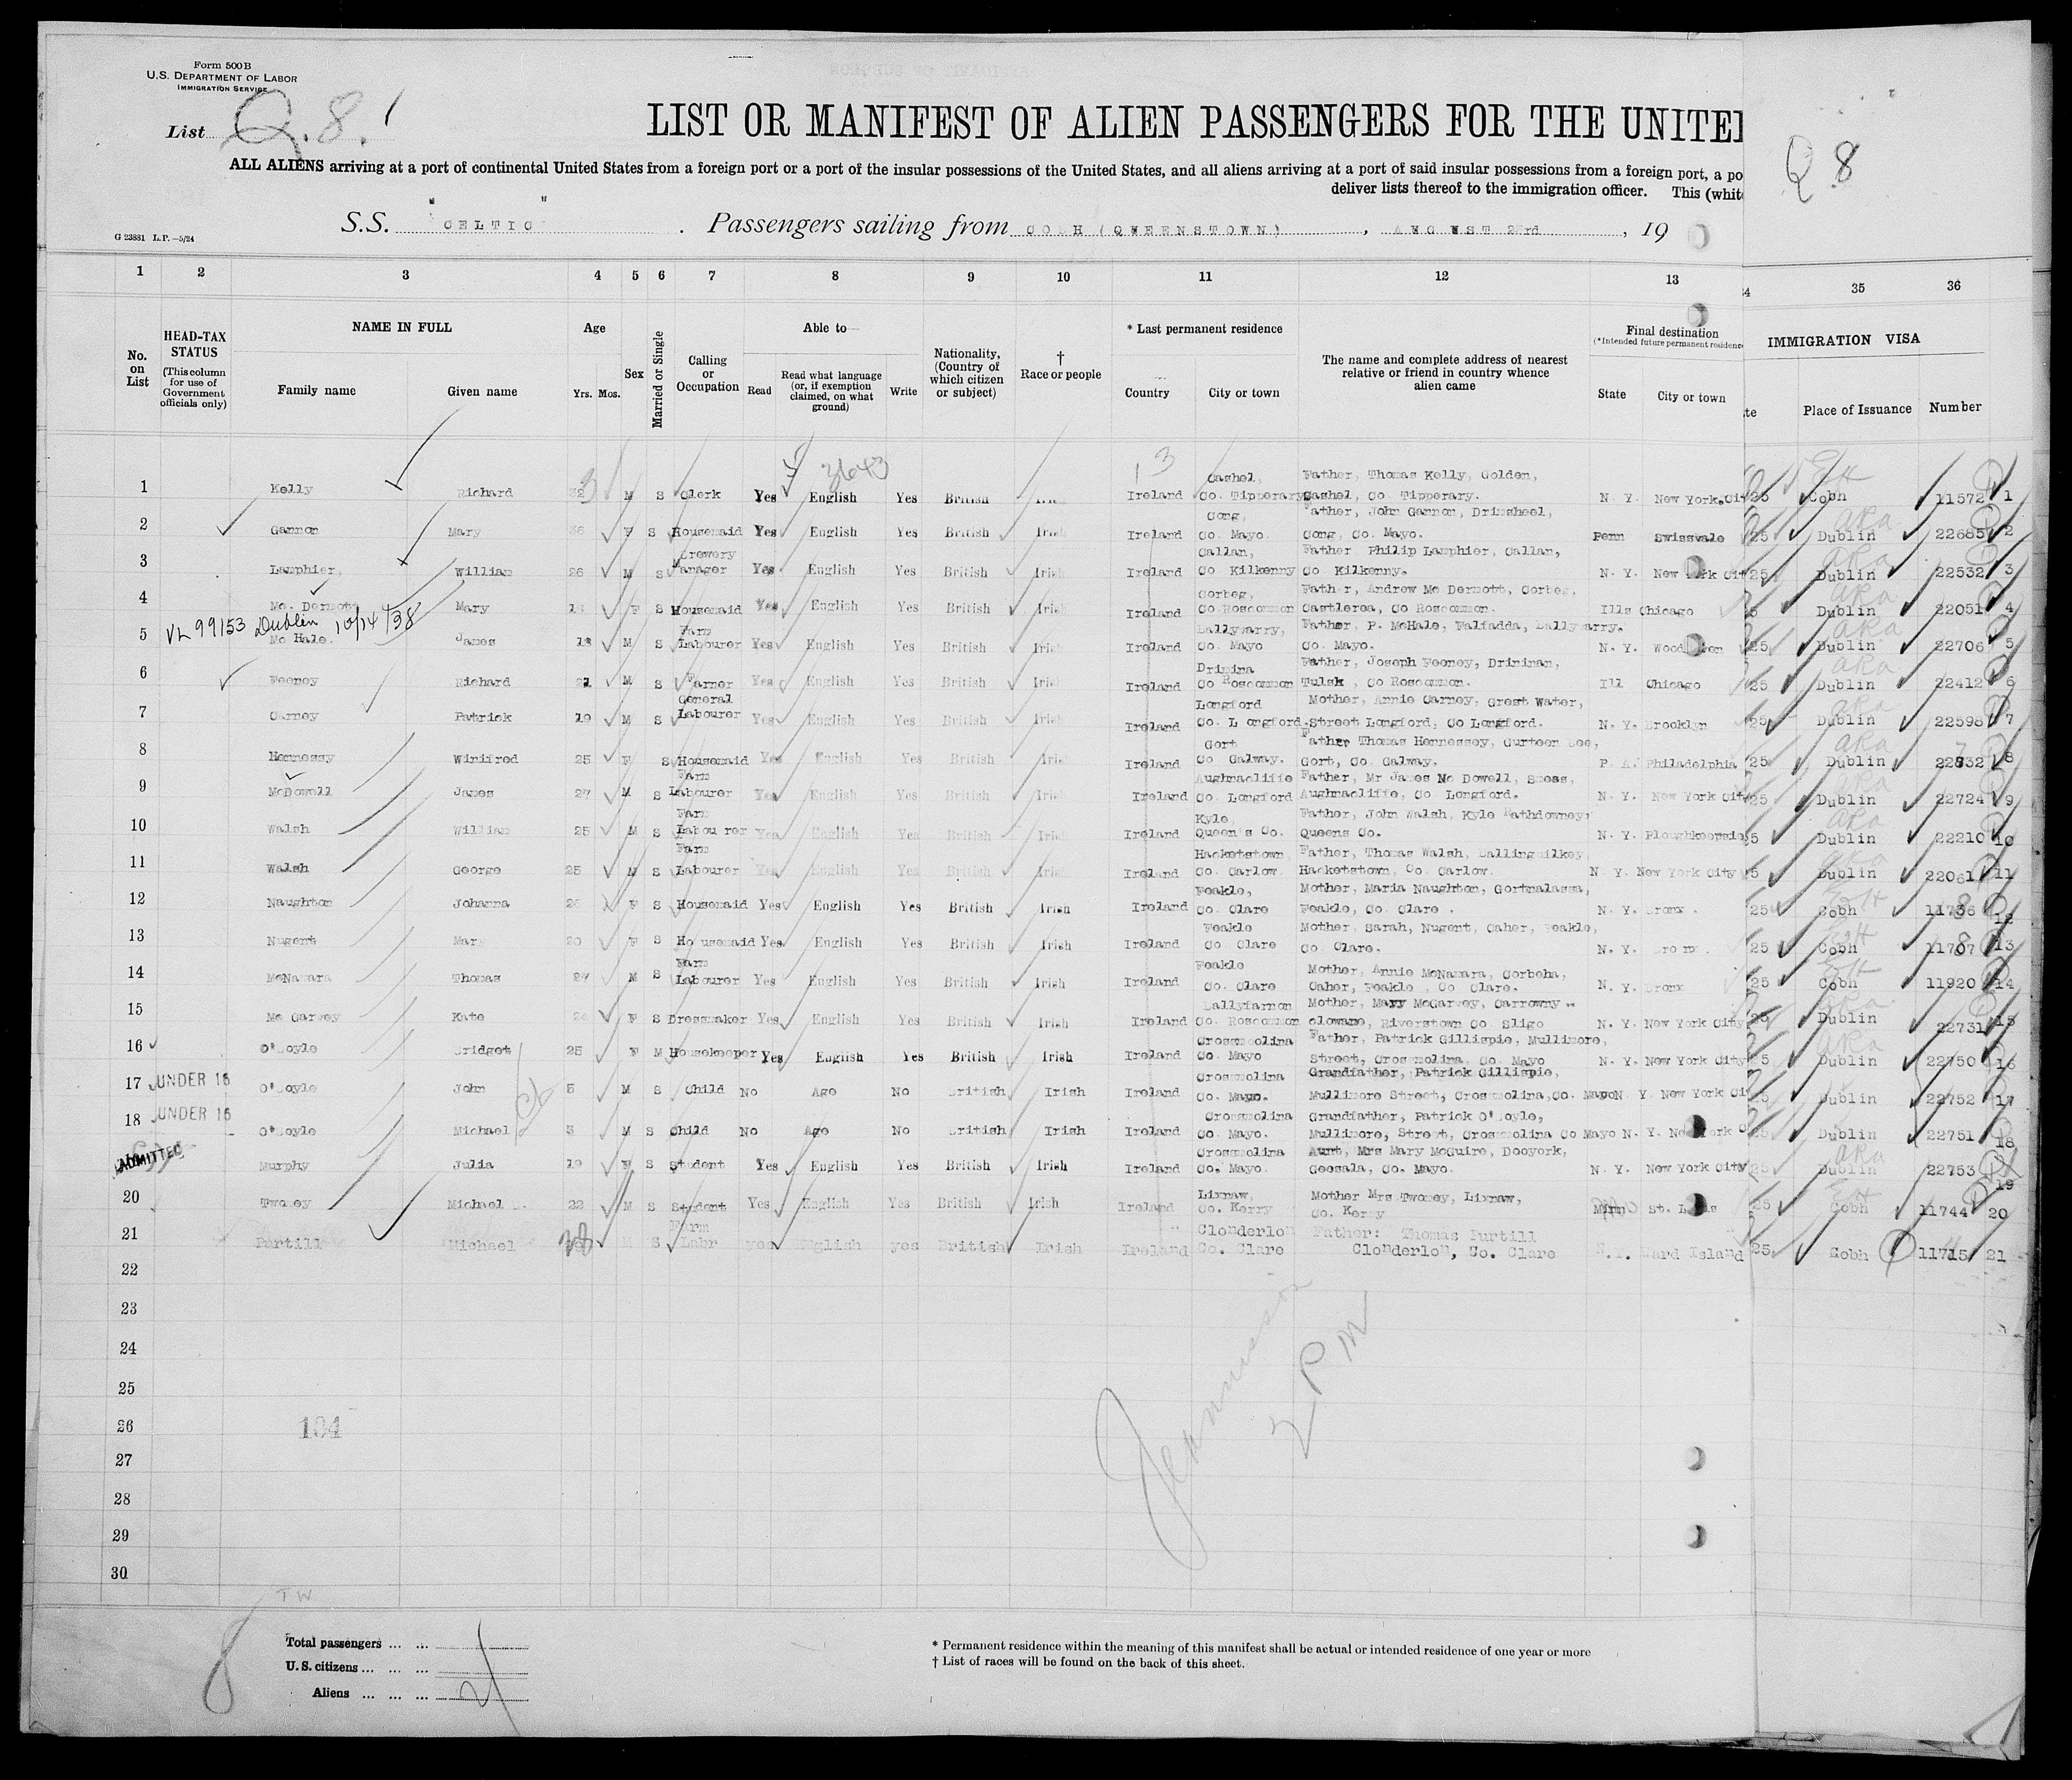 Form 500B
U.S. DEPARTMENT OF LABOR
IMMIGRATION SERVICE
List Q.8.
LIST OR MANIFEST OF ALIEN PASSENGERS FOR THE UNITE
Q 8
ALL ALIENS arriving at a port of continental United States from a foreign port or a port of the insular possessions of the United States, and all aliens arriving at a port of said insular possessions from a foreign port, a po
deliver lists thereof to the immigration officer. This (whit
G 23881 L.P.—5/24
S.S. "CELTIC". Passengers sailing from COBH (QUEENSTOWN), AUGUST 23rd, 19
1 2 3 4 5 6 7 8 9 10 11 12 13 35 36
No. on List
HEAD-TAX STATUS (This column for use of Government officials only)
NAME IN FULL
Family name Given name
Age
Yrs. Mos.
Sex
Married or Single
Calling or Occupation
Able to—
Read
Read what language (or, if exemption claimed, on what ground)
Write
Nationality, (Country of which citizen or subject)
† Race or people
* Last permanent residence
Country City or town
The name and complete address of nearest relative or friend in country whence alien came
Final destination
(*Intended future permanent residence
State City or town
IMMIGRATION VISA
te Place of Issuance Number
3643
1 Kelly Richard M S Clerk Yes English Yes British Ireland Cashel, Co. Tipperary Father, Thomas Kelly, Golden, Cashel, Co Tipperary. N. Y. New York.Cit 25 Cobh 11572 1
2 Gannon Mary F S Housemaid Yes English Yes British Irish Ireland Cong, Co. Mayo. Father, John Gannon, Drimsheel, Cong, Co. Mayo. Penn Swissvale 25 Dublin 22685 2
3 Lamphier, William 26 M S Brewery Manager Yes English Yes British Irish Ireland Callan, Co Kilkenny Father Philip Lamphier, Callan, Co. Kilkenny. N. Y. New York Cit 25 Dublin 22532 3
4 Mc. Dermott Mary F S Housemaid Yes English Yes British Irish Ireland Gorbeg, Co Roscommon Father, Andrew Mc Dermott, Gorbeg, Castlerea, Co Roscommon. Ills Chicago 5 Dublin 22051 4
VL 99153 Dublin 10/14/38
5 Mc Hale. James M S Farm Labourer Yes English Yes British Irish Ireland Ballyvarry, Co. Mayo Father, P. McHale, Falfadda, Ballyvarry. Co. Mayo. N. Y. 25 Dublin 22706 5
6 Feeney Richard 21 M S Farmer Yes English Yes British Irish Ireland Drimina Co Roscommon Father, Joseph Feeney, Driminan, Tulsk, Co Roscommon. Ill Chicago 25 Dublin 22412 6
7 Carney Patrick 19 M S General Labourer Yes English Yes British Irish Ireland Longford Co. Longford. Mother, Annie Carney, Grest Water, Street Longford, Co Longford. N. Y. Brooklyn 25 Dublin 22598 7
8 Hennessy Winifred 25 F S Housemaid Yes English Yes British Irish Ireland Gort Co Galway. Father Thomas Hennessey, Gurteen Boe, Gort, Co. Galway. P. A. Philadelphia 25 Dublin 22832 8
9 McDowell James 27 M S Farm Labourer Yes English Yes British Irish Ireland Aughnacliffe Co Longford Father, Mr James Mc Dowell, Smess, Aughnacliffe, Co Longford. N. Y. New York Cit 25 Dublin 22724 9
10 Walsh William 25 M S Farm Labou rer Yes English Yes British Irish Ireland Kyle, Queen's Co. Father, John Walsh, Kyle Rathdowney, Queens Co. N. Y. Ploughkeepsie 5 Dublin 22210 10
11 Walsh George 25 M S Farm Labourer Yes English Yes British Irish Ireland Hacketstown, Co. Carlow. Father, Thomas Walsh, Ballinguilkey Hacketstown, Co. Carlow. N Y. New York City 5 Dublin 22061 11
12 Naughton Johanna 26 F S Housemaid Yes English Yes British Irish Ireland Feakle, Co. Clare Mother, Maria Naughton, Gortmalassa, Feakle, Co. Clare. N. Y. Bronx. 25 Cobh 11736 12
13 Nugent Mar 20 F S Housemaid Yes English Yes British Irish Ireland Feakle Co. Clare Mother, Sarah, Nugent, Caher, Feakle, Co. Clare. N. Y. Bronx. 25 Cobh 11707 13
14 McNamara Thomas 27 M S Farm Labourer Yes English Yes British Irish Ireland Feakle Co. Clare Mother, Annie McNamara, Corbeha, Caher, Feakle, Co Clare. N. Y. Bronx 25 Cobh 11920 14
15 Mc Garvey Kate F S Dressmaker Yes English Yes British Irish Ireland Ballyfarnon Co. Roscommon Mother, Mary McGarvey, Carrowny-clowane, Riverstown Co Sligo N. Y. New York City 25 Dublin 22731 15
16 O'Boyle Bridget 25 F M Housekeeper Yes English Yes British Irish Ireland Crossmolina Co. Mayo Father, Patrick Gillispie, Mullimore, Street, Crossmolina, Co. Mayo N. Y. New York City 25 Dublin 22750 16
17 UNDER 16 O'Boyle John 5 M S Child No Age No British Irish Ireland Crossmolina Co. Mayo. Grandfather, Patrick Gillispie, Mullimore Street, Crossmolina,Co. Mayo N. Y. New York Ci 25 Dublin 22752 17
18 UNDER 16 O'Boyle Michael 3 M S Child No Age No British Irish Ireland Crossmolina Co. Mayo. Grandfather, Patrick O'Boyle, Mullimore, Street, Crossmolina Co Mayo N. Y. New York C 25 Dublin 22751 18
ADMITTED Murphy Julia 19 F S Student Yes English Yes British Irish Ireland Crossmolina Co. Mayo. Aunt, Mrs Mary McGuire, Dooyork, Geesala, Co. Mayo. N. Y. New York City 25 Dublin 22753 19
20 Twomey Michael 22 M S Student Yes English Yes British Irish Ireland Lixnaw, Co. Kerry Mother Mrs Twomey, Lixnaw, Co. Kerry St. Louis 25 Cobh 11744 20
21 Purtill Michael 28 M S Farm Labr yes English yes British Irish Ireland Clonderlon Co. Clare Father: Thomas Purtill Clonderlon, Co. Clare N.Y. Ward Island 25 Cobh 11715 21
22
23
24
25
26 104
27
28
29
30
2 PM
TW
8
Total passengers ... ...
U. S. citizens ... ... ...
Aliens ... ... ... 21
* Permanent residence within the meaning of this manifest shall be actual or intended residence of one year or more
† List of races will be found on the back of this sheet.